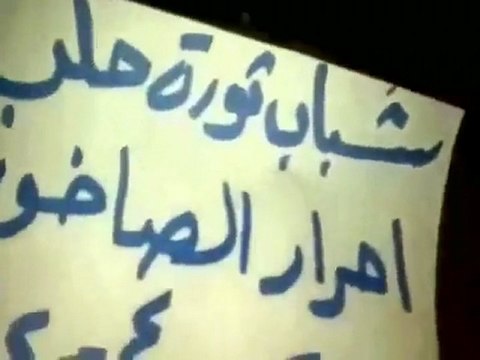 شباب ثورة حلب
احرار الصاخو
٤ - ٢